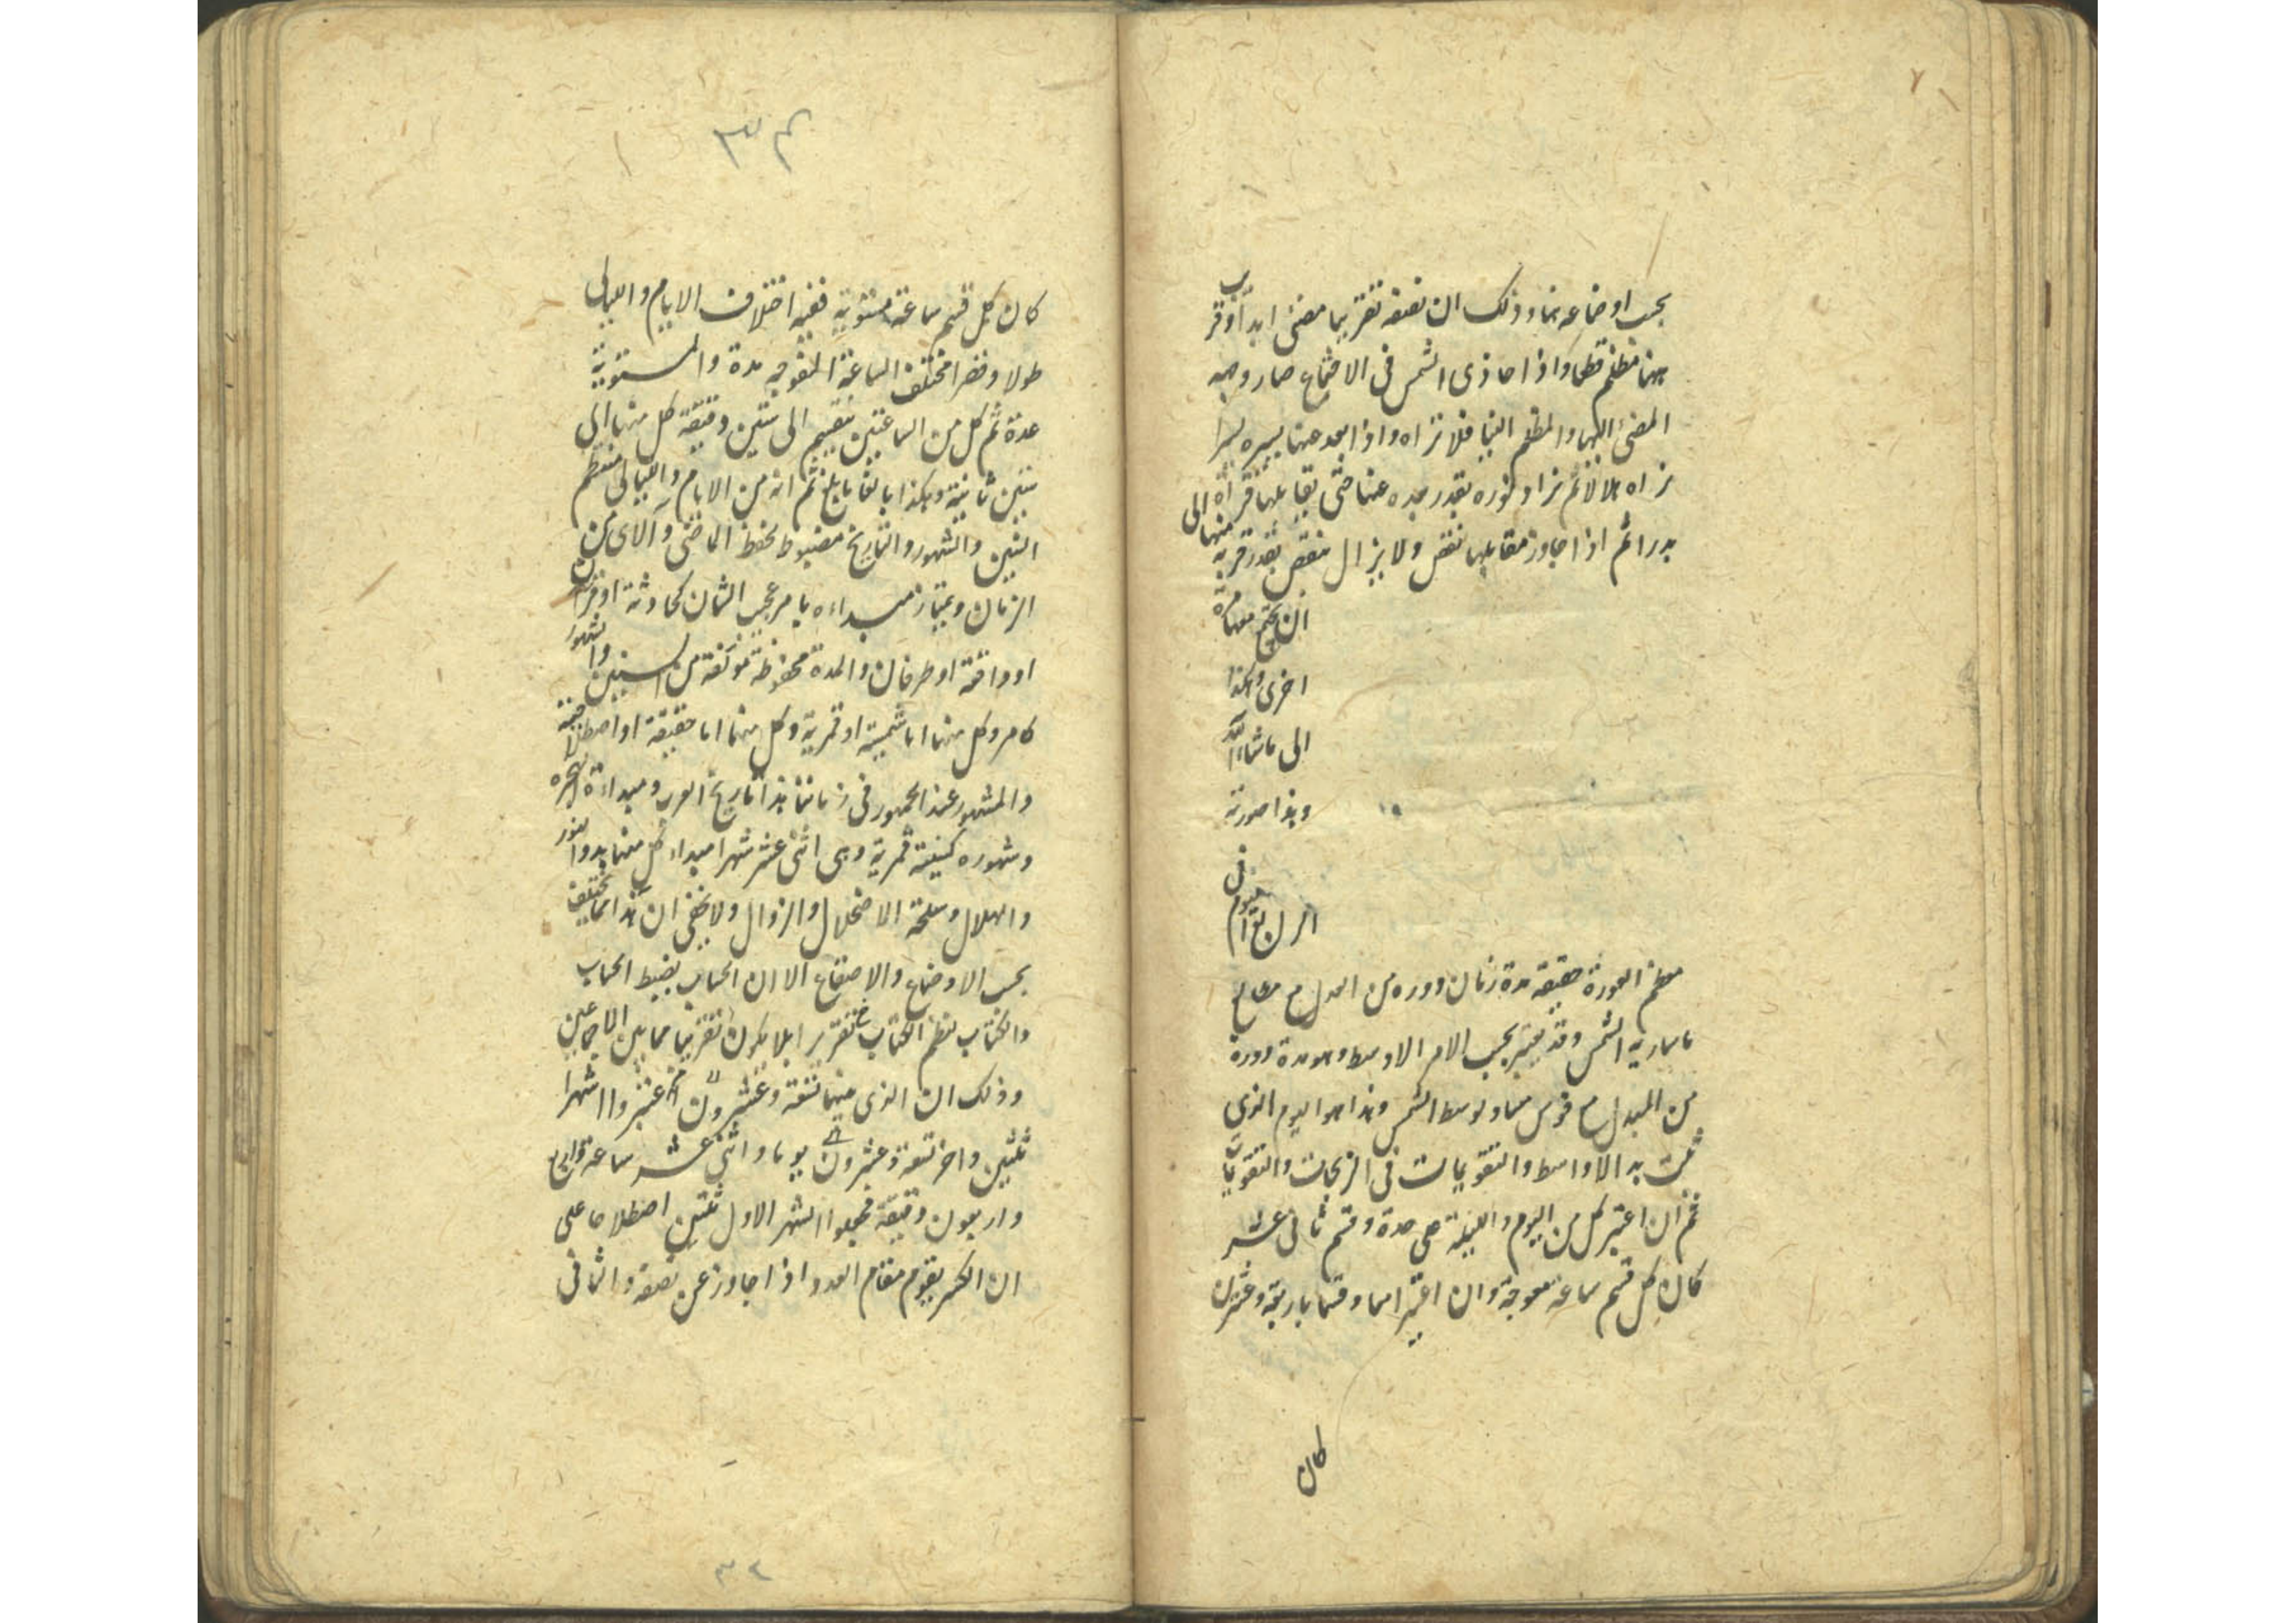 بحسب اوضاعه بها وذلك ان نصفه تقريبا مضئ ابدا وقرب
منها مظلم قطعا واذا حاذى الشمس فى الاجتماع صار وجهه
المضئ اليها والمظلم الينا فلا نراه واذا بعد عنها يسيره يسيرا
نراه هلالا ثم نزاد نوره بقدر بعده عنها حتى يقابلها فنراه
بدرا ثم اذا جاوز مقابلها نقص ولا يزال ينقص بقدر قربه منها الى
ان يجتمع معها مرة
اخرى وهكذا
الى ما شاء الله
وهذا صورته
فى
اليوم
مدة زمان دورة من المعدل مع مطالع
ما سارته الشمس وقد يعتبر بحسب الامر الاوسط وهو مدة دورة
من المعدل مع قوس مساو لوسط الشمس وهذا هو اليوم الذى
به الاواسط والتقويمات فى الزيجات والتقويمات
ثم ان اعتبر كل من اليوم والليلة على حدة وقسم ثانى عشر
كان كل قسم ساعة معوجة وان اعتبرا معا وقسما باربعة وعشرين
كان
كان كل قسم ساعة مستوية ففيه اختلاف الايام والليالى
طولا وقصرا مختلف الساعة المعوجه مدة والمستوية
عدة ثم كل من الساعتين ينقسم الى ستين دقيقة كل منها الى
ستين ثانية وهكذا بالغا ما بلغ ثم انه من الايام والليالى ينتظم
السنين والشهور والتاريخ مضبوط بحفظ الماضى والآتى من
الزمان ويمتاز مبداءه بامر عجيب الشان كحادثة او قران
او واقعة او طوفان والمدة محفوظة مؤلفة من السنين والشهور
كامر وكل منها اما شمسية او قمرية وكل منها اما حقيقة او اصطلاحية
والمشهور عند الجمهور فى زماننا هذا تاريخ العرب ومبداءة الهجره
وشهوره كسنيه قمرية وهى اثنى عشر شهرا مبداء كل منها بدوا بنور
والهلال وسلخه الاضمحلال والزوال ولا يخفى ان هذا مما يختلف
بحسب الاوضاع والاصقاع الا ان الحساب بضبط الحساب
والكتاب لنظم الكتاب تقريرا لا يكون تقريبا مما بين الاجتماعين
وذلك ان الذى بينهما تسعة وعشرون عشروا شهرا
ثلثين واخر تسعة وعشرون يوما واثنى عشر ساعة
واربعون دقيقة فجعلوا الشهر الاول ثلثين اصطلاحا على
ان الكسر يقوم مقام العدد اذا جاوز عن نصفه والثانى